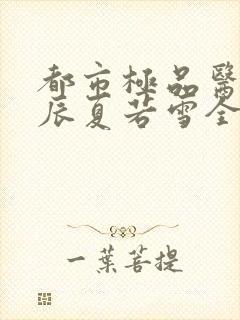 都市極品醫
辰夏若雪全
一葉菩提